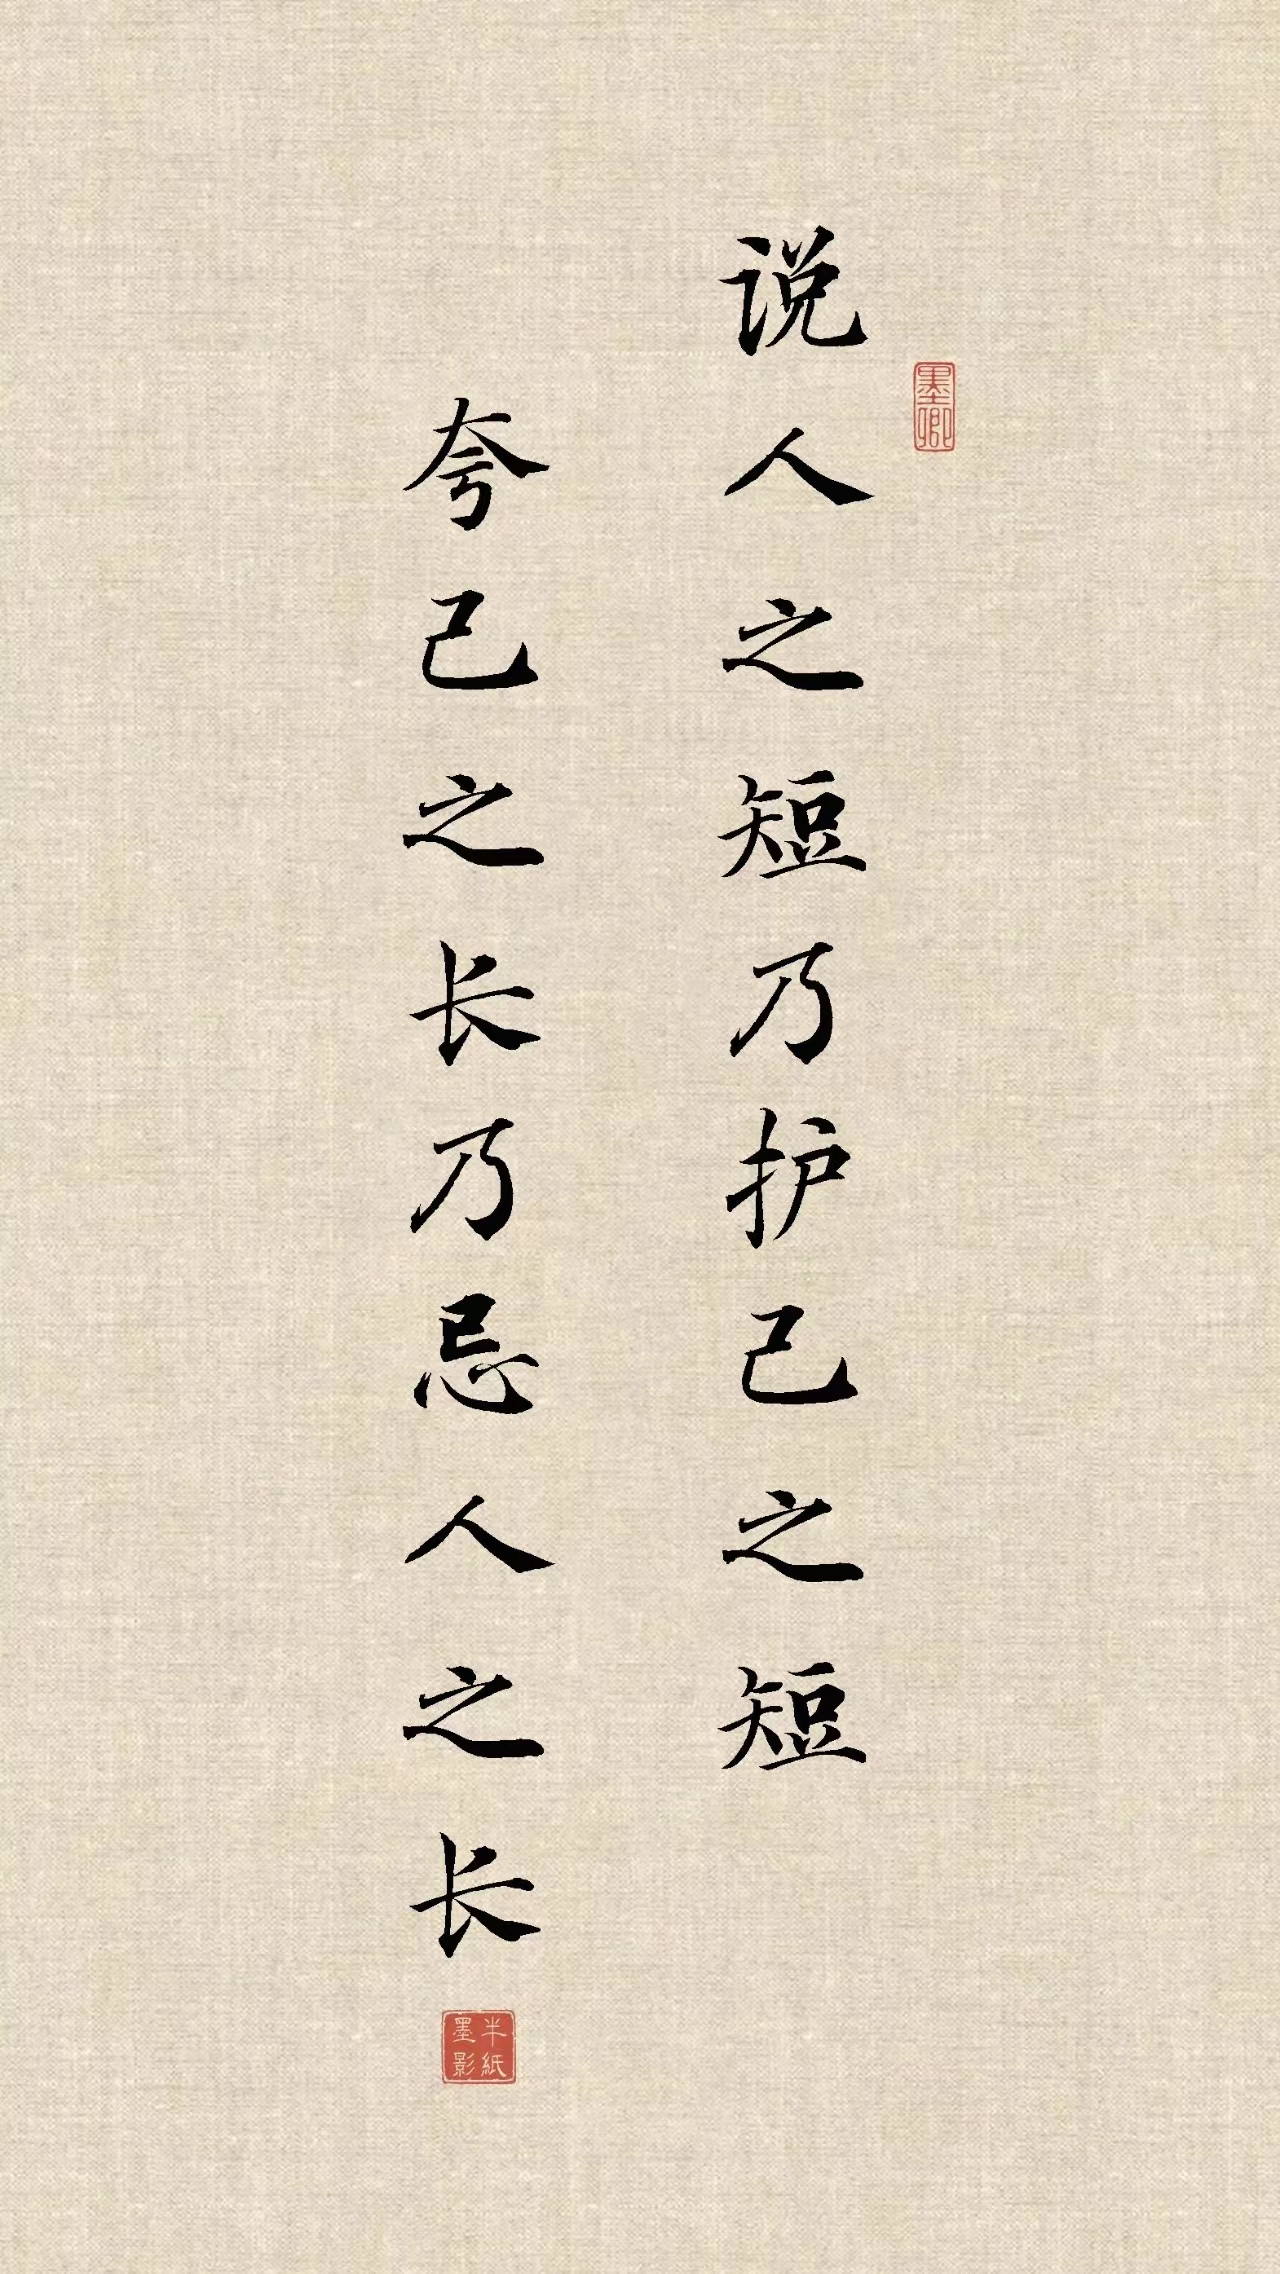 说人之短乃护己之短
夸己之长乃忌人之长
墨卿
半紙
墨影